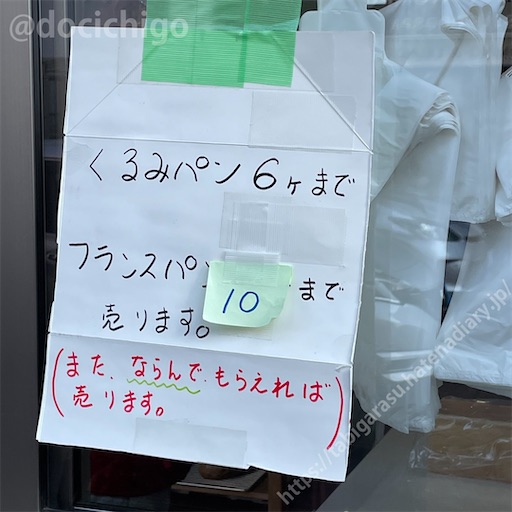 @docichigo
くるみパン 6ヶまで
フランスパン 10 まで
売ります。
(また、ならんで、もらえれば
売ります。)
https://tabigarasu.hatenadiary.jp/